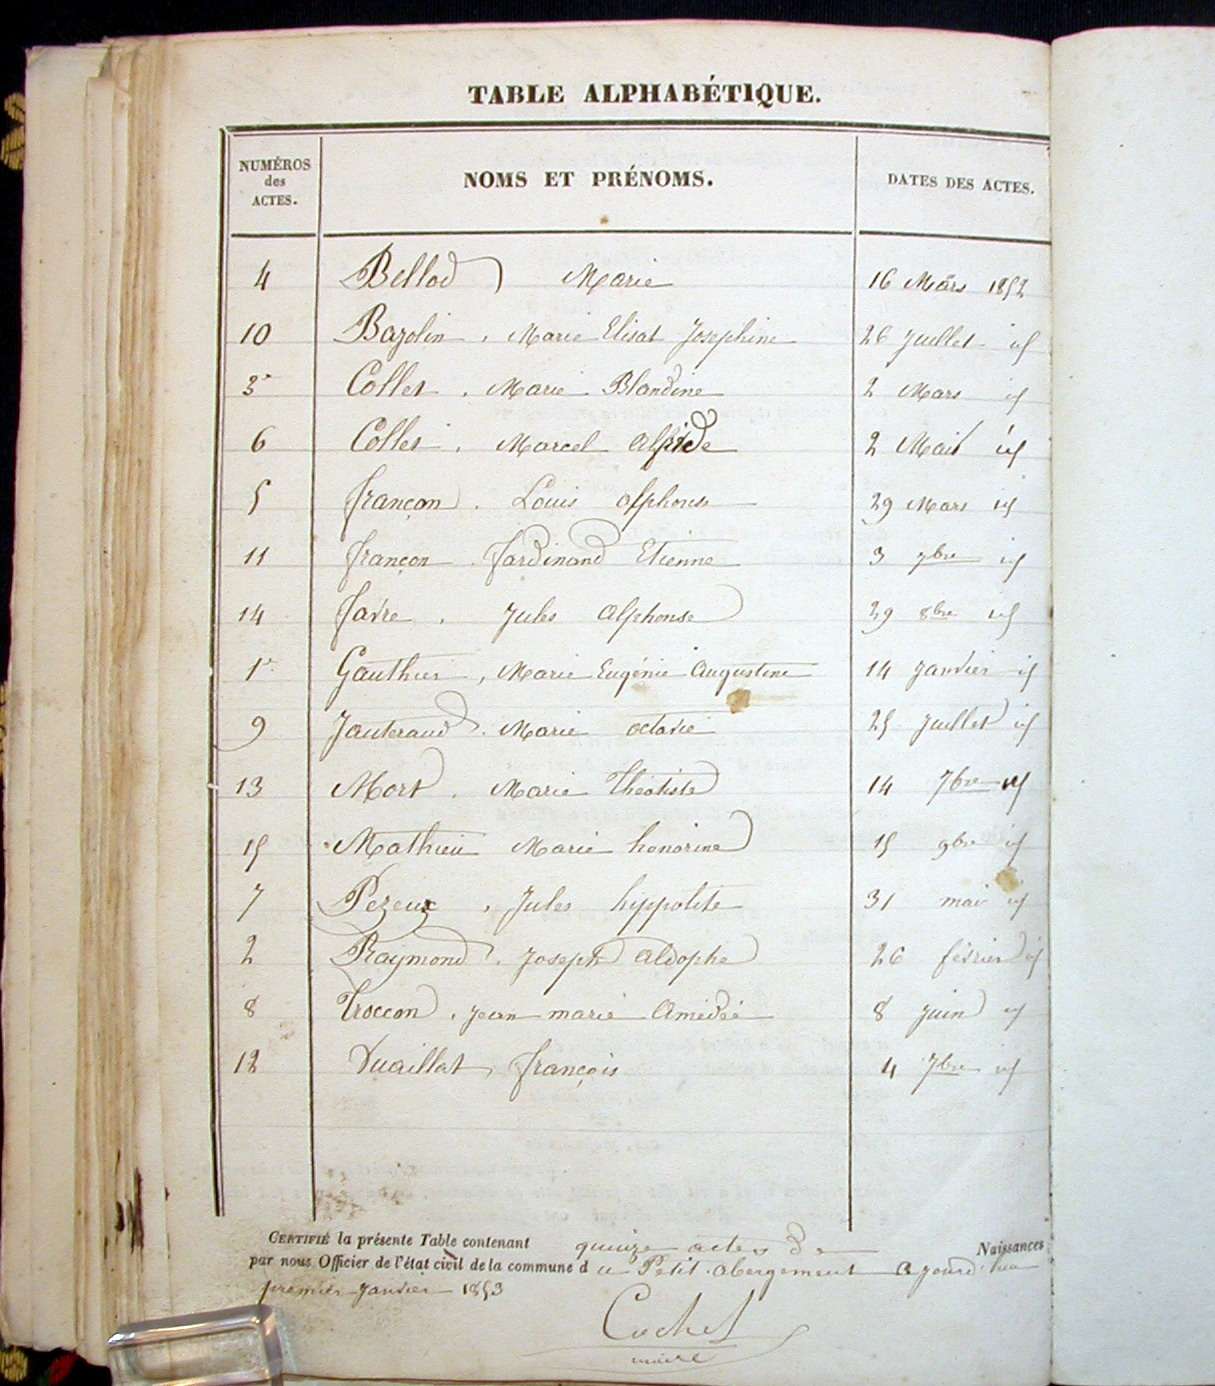 TABLE ALPHABÉTIQUE.
NUMÉROS des ACTES. NOMS ET PRÉNOMS. DATES DES ACTES.
4 Bellod Marie 16 Mars 1852
10 Bazolin, Marie Elisat Josephine 26 Juillet id
3 Collet, Marie Blandine 2 Mars id
6 Collet, Marcel Alfride 2 Mai id
5 françon, Louis alphonse 29 Mars id
11 françon, fardinand Etienne 3 7bre id
14 favre, Jules Alphonse 29 8bre id
1r Gauthier, Marie Eugénie Augustine 14 Janvier id
9 Jauteraud, Marie octavie 25 Juillet id
13 Mort, Marie Théotiste 14 7bre id
15 Mathieu Marie honorine 15 9bre id
7 Pezeux, Jules hyppolite 31 mai id
2 Raymond, Joseph Aldophe 26 février id
8 Troccon, jean marie Amédée 8 juin id
12 Vuaillat, françois 4 7bre id
CERTIFIÉ la présente Table contenant quinze actes de Naissances
par nous Officier de l'état civil de la commune du Petit abergement ajourd'hui
premier Janvier 1853
Cochet
maire